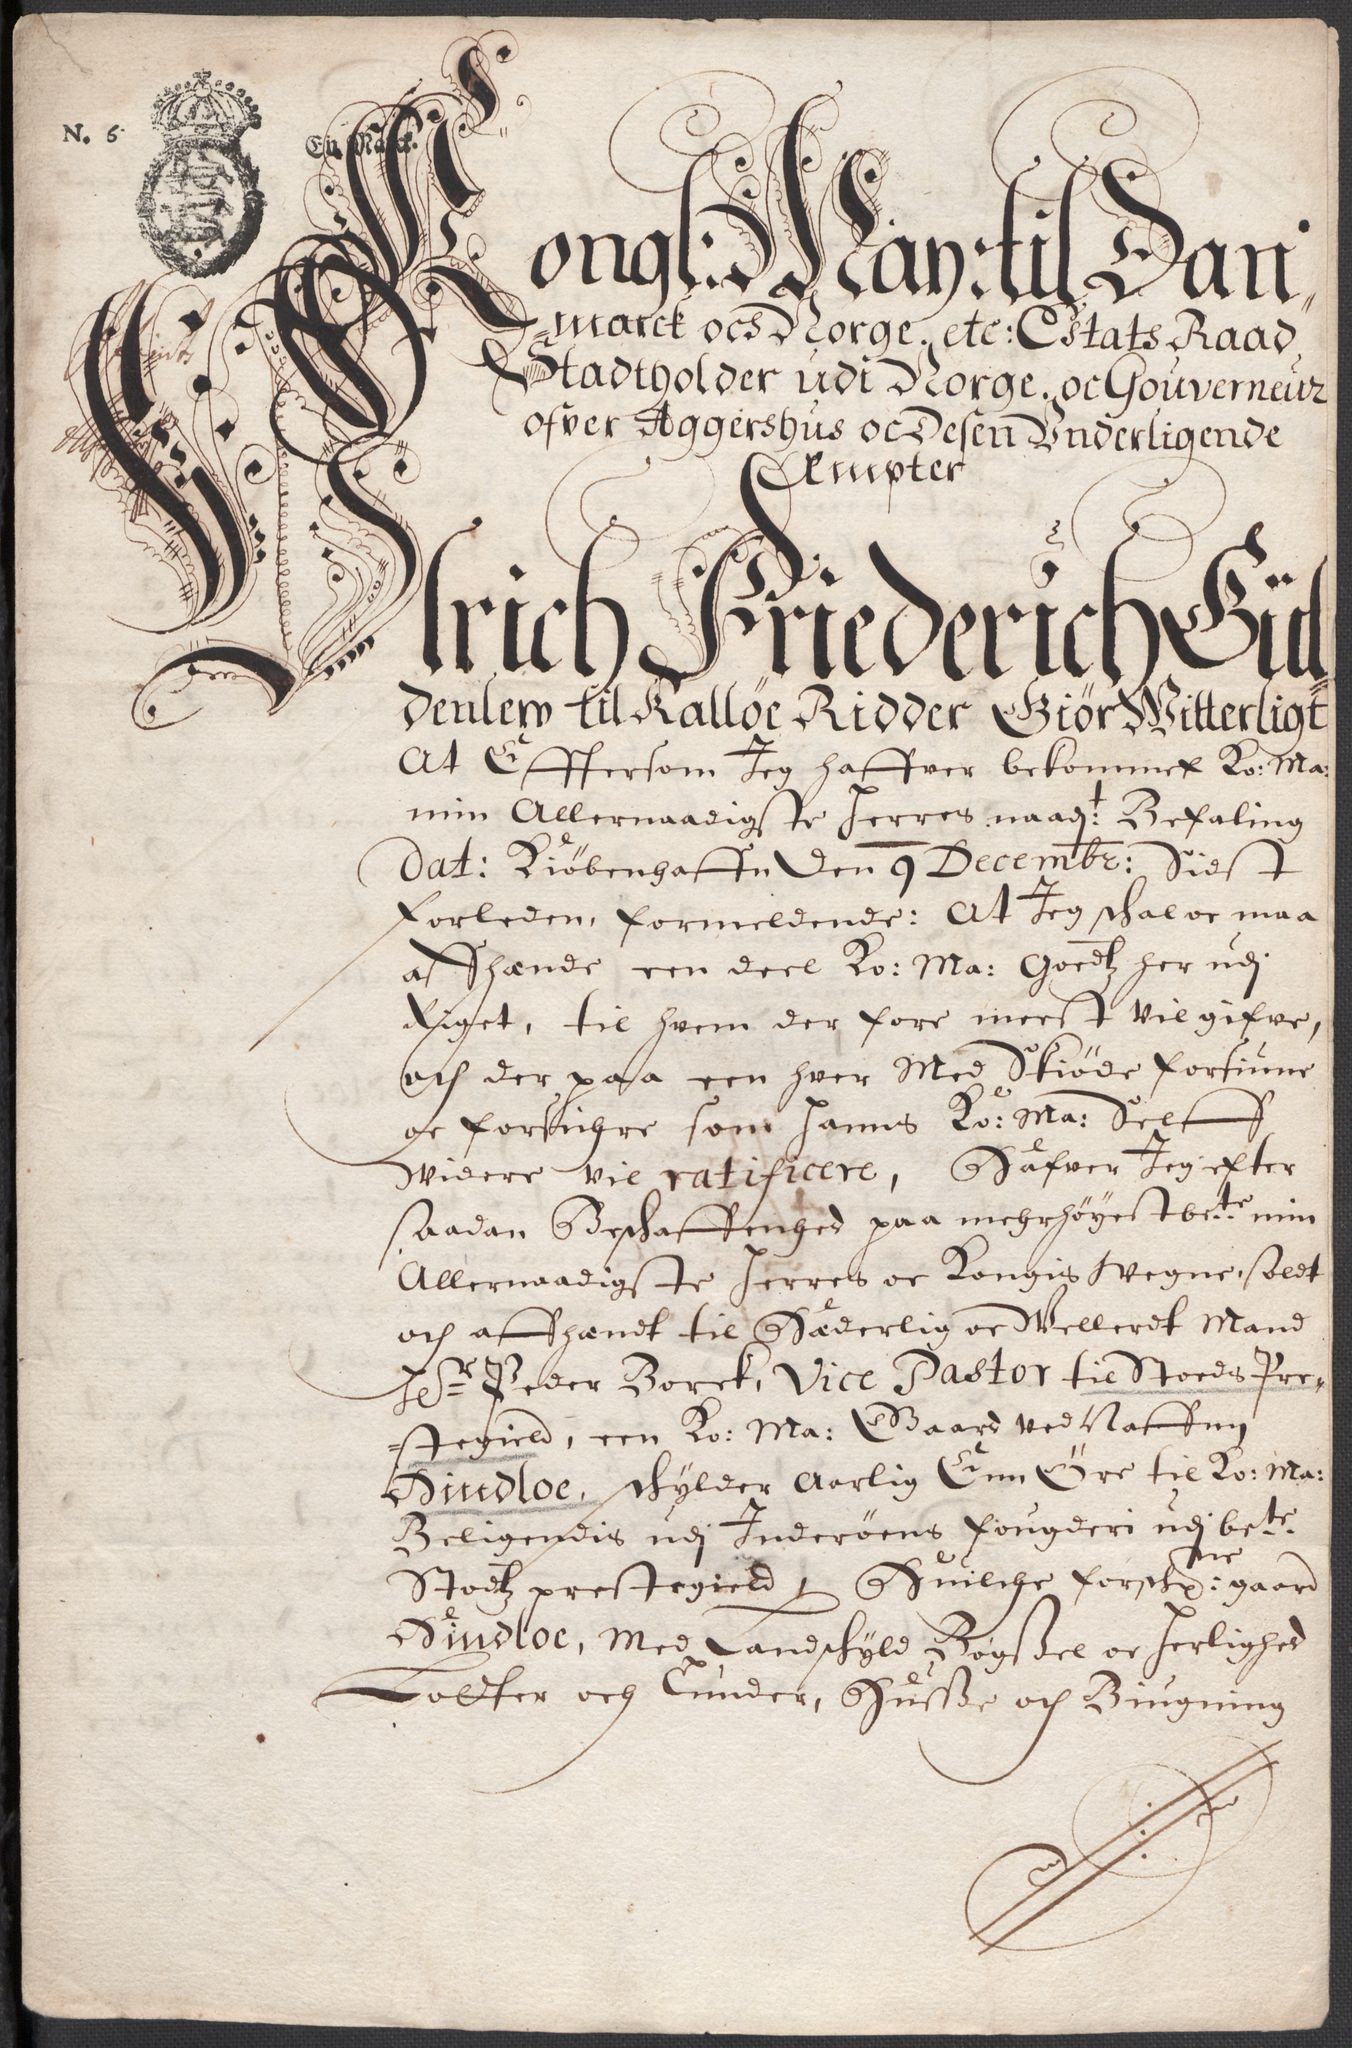 N. 6.
En Marck.
Kongl: May: til Dan„
„marck och Norge. etc: Estats Raad
Stadtholder udi Norge. oc Gouverneur
ofver Aggershus oc Desen Underligende
Æmpter
Ulrich Friederich Gül„
denlew til Kallöe Ridder Giör Witterligt
At Effttersom Jeg haffver bekommet Ko: Ma:
min Allernaadigste Herres naadt: Befaling
Dat: Kiöbenhaffn Den 9 Decembr: Sidst
forleden, formeldende: At Jeg schal oc maa
affhænde een deel Ko: Ma: Goedtz her udj
Riget, til hvem der fore meest vil gifve,
och der paa een hver Med Skiöde forsiune
oc forsichre som hanns Ko: Ma: Selff
widere vil ratificere, Häfver Jeg efter
saadan Beschaffenhed paa mehrhöyestbete: min
Allernaadigste Herres oc Kongis Wegne, soldt
och affhændt til Hæderlig oc Wellerdt Mand
Hr: Peder Borck, Vice Pastor til Stoeds Pre„
„stegield, een Ko: Ma: Gaard ved Naffn
Hindloe, schylder Aarlig Enn Öre til Ko: Ma:
Beligendis udj Inderöens fougderi udj bete:
Stodtz prestegield, Huilche forschne: gaard
Hindloe, Med Landschyld Bögßel oc Herlighed
Toffter och Tunder, Husße och Biugning